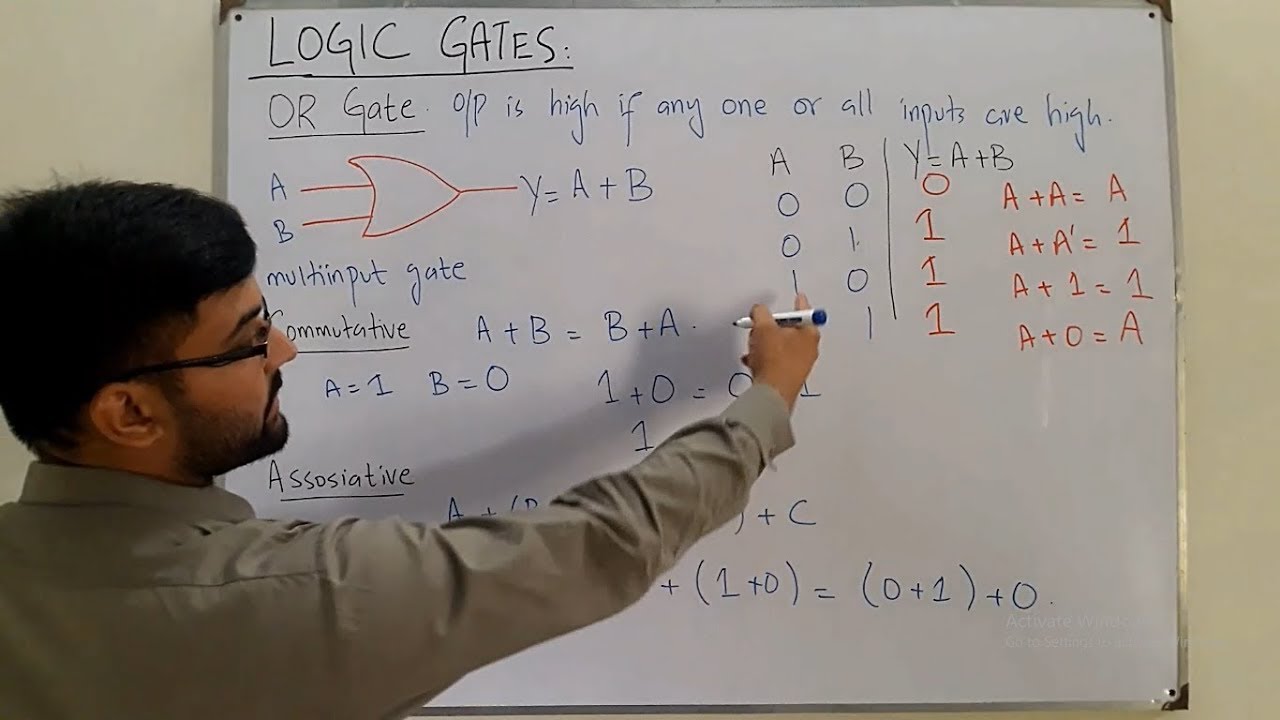 LOGIC GATES:
OR Gate. O/P is high if any one or all inputs are high.
A
B
Y=A+B
multiinput gate
Commutative A+B = B+A.
A=1 B=0 1+0 = 0 1
1
Assosiative
A + (B ) + C
+ (1+0) = (0+1)+0.
A B Y=A+B
0 0 0
0 1 1
1 0 1
1 1
A+A= A
A+A'= 1
A+1=1
A+0=A
Activate Windows
Go to Settings to activate Windows.